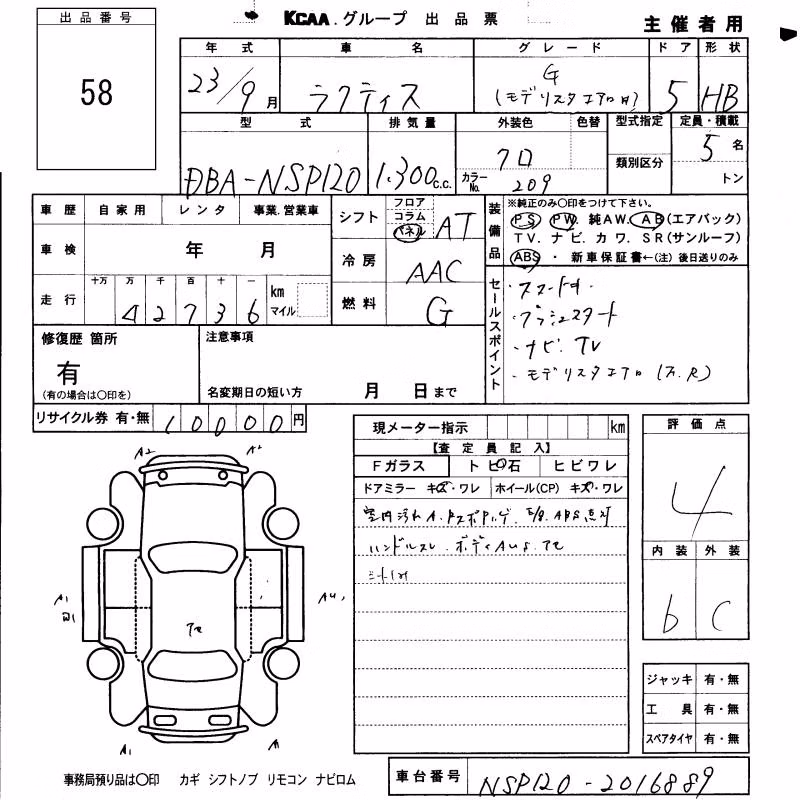 出品番号
58
KCAA.グループ 出品票
主催者用
年式 車名 グレード ドア 形状
23/9月 ラクティス G (モデリスタエアロ付) 5 HB
型式 排気量 外装色 色替 型式指定 定員・積載
類別区分
DBA-NSP120 1.300c.c. クロ カラーNo. 209 5名
トン
車歴 自家用 レンタ 事業.営業車
車検 年 月
走行 十万 万 千 百 十 一 km マイル
42736
シフト フロア コラム パネル AT
冷房 AAC
燃料 G
装備品
※純正のみ○印をつけて下さい。
PS PW. 純AW. AB(エアバック)
TV. ナビ. カワ. SR(サンルーフ)
ABS・新車保証書←(注) 後日送りのみ
セールスポイント
・スマートキー
・プッシュスタート
・ナビ. TV
・モデリスタエアロ (F.R)
修復歴 箇所
有
(有の場合は○印を)
注意事項
名変期日の短い方 月 日まで
リサイクル券 有・無 10000円
現メーター指示 km
【査定員記入】
Fガラス トビ石 ヒビワレ
ドアミラー キズ・ワレ ホイール(CP) キズ・ワレ
ハンドルスレ.
評価点
4
内装 外装
b C
A2 A2
A1
A1
ジャッキ 有・無
工具 有・無
スペアタイヤ 有・無
事務局預り品は○印 カギ シフトノブ リモコン ナビロム
車台番号 NSP120-2016889